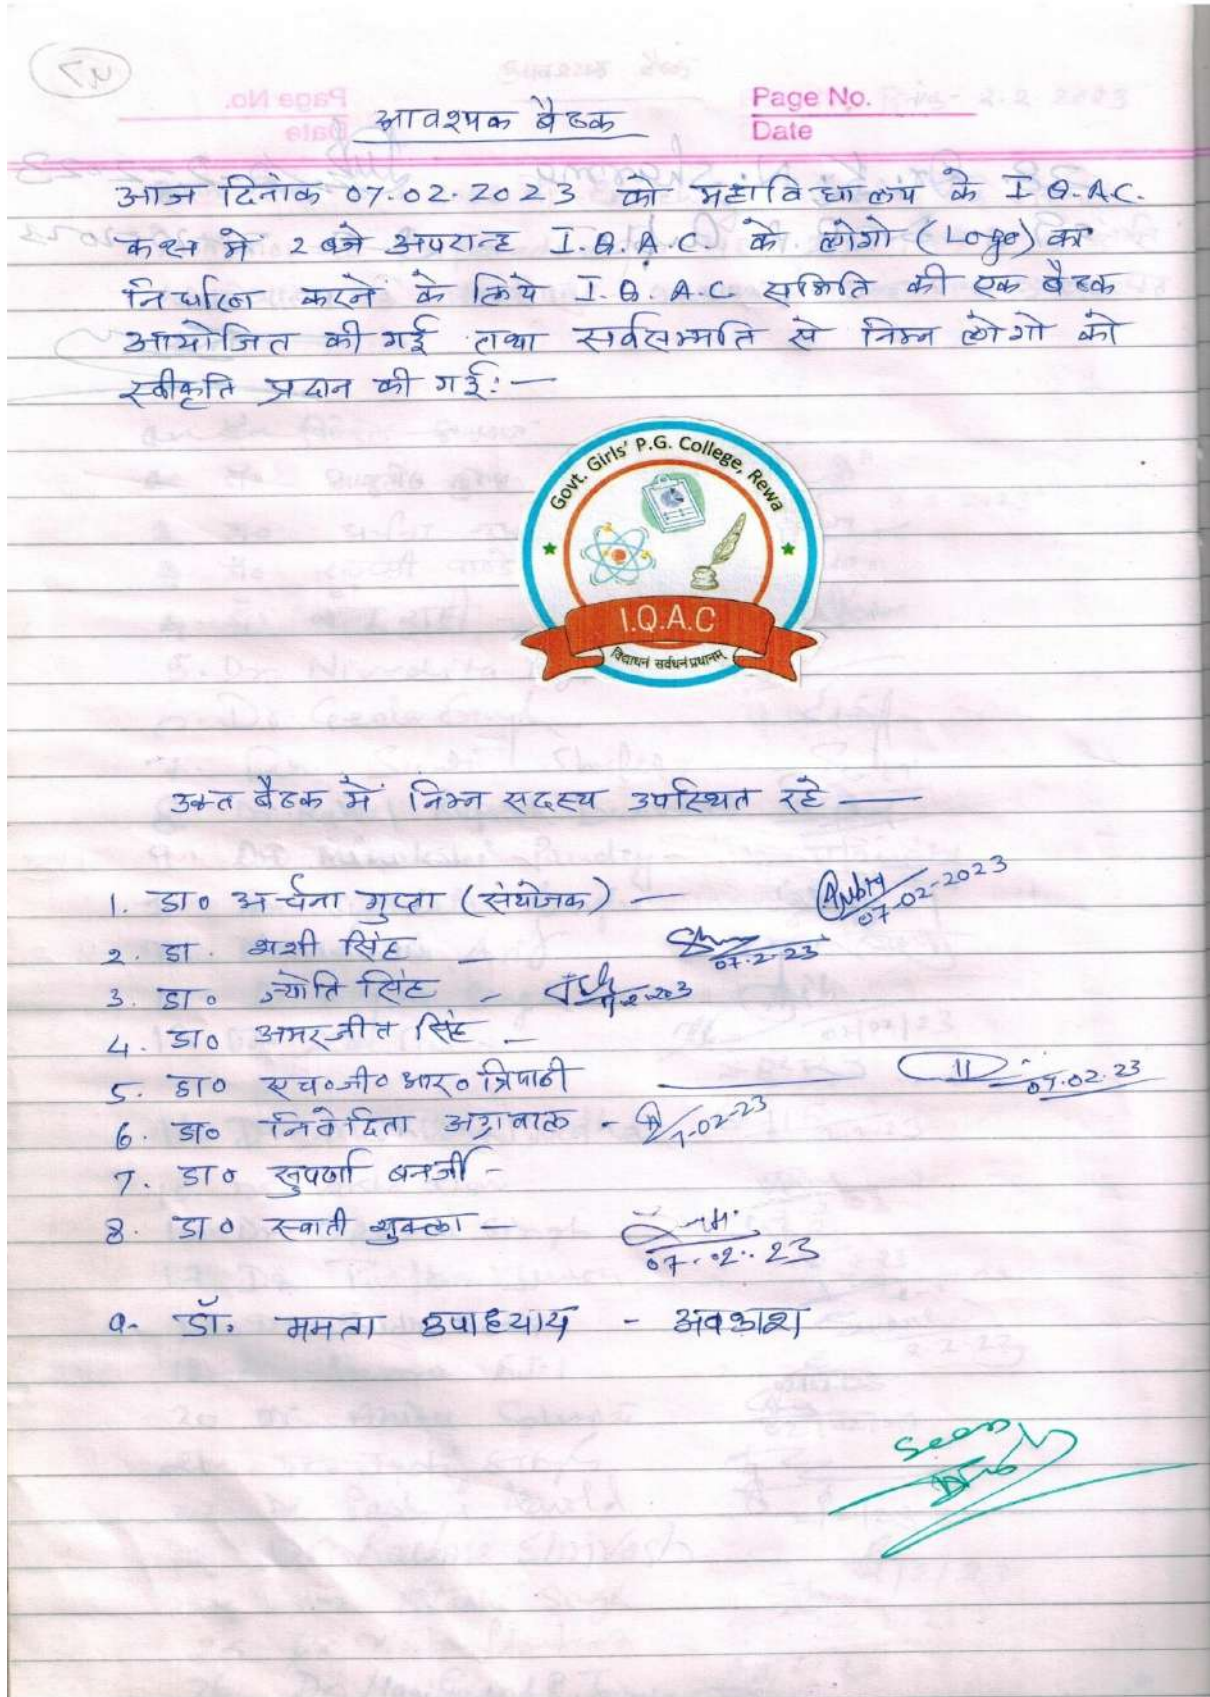 आवश्यक बैठक
Page No.
Date
आज दिनांक 07.02.2023 को महाविद्यालय के I.Q.A.C.
कक्ष में 2 बजे अपरान्ह I.Q.A.C. के लोगो (Logo) का
निर्धारण करने के लिये I.Q.A.C समिति की एक बैठक
आयोजित की गई तथा सर्वसम्मति से निम्न लोगो को
स्वीकृति प्रदान की गई:—
Govt. Girls' P.G. College, Rewa
I.Q.A.C
विद्याधनं सर्वधनं प्रधानम्
उक्त बैठक में निम्न सदस्य उपस्थित रहे —
1. डा० अर्चना गुप्ता (संयोजक) — 07-02-2023
2. डा. शशी सिंह — 07.2.23
3. डा० ज्योति सिंह -
4. डा० अमरजीत सिंह -
5. डा० एच०जी०आर० त्रिपाठी — 07.02.23
6. डा० निवेदिता अग्रवाल - 7-02-23
7. डा० सुपर्णा बनर्जी -
8. डा० स्वाती शुक्ला — 07.02.23
9- डॉ. ममता उपाध्याय - अवकाश
Seen